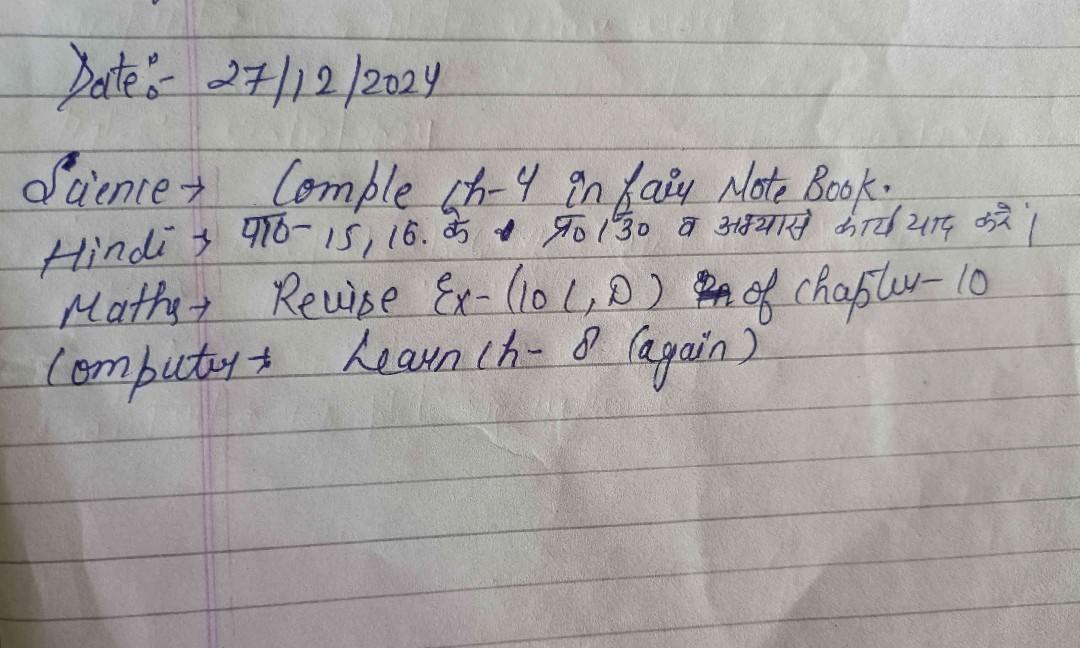 Date:- 27/12/2024
Science → Comple Ch-4 in fair Note Book.
Hindi → पाठ- 15, 16. के प्र0 / उ0 व अभ्यास कार्य याद करें।
Maths → Revise Ex- (10 C, D) of chapter- 10
Computer → Learn Ch- 8 (again)